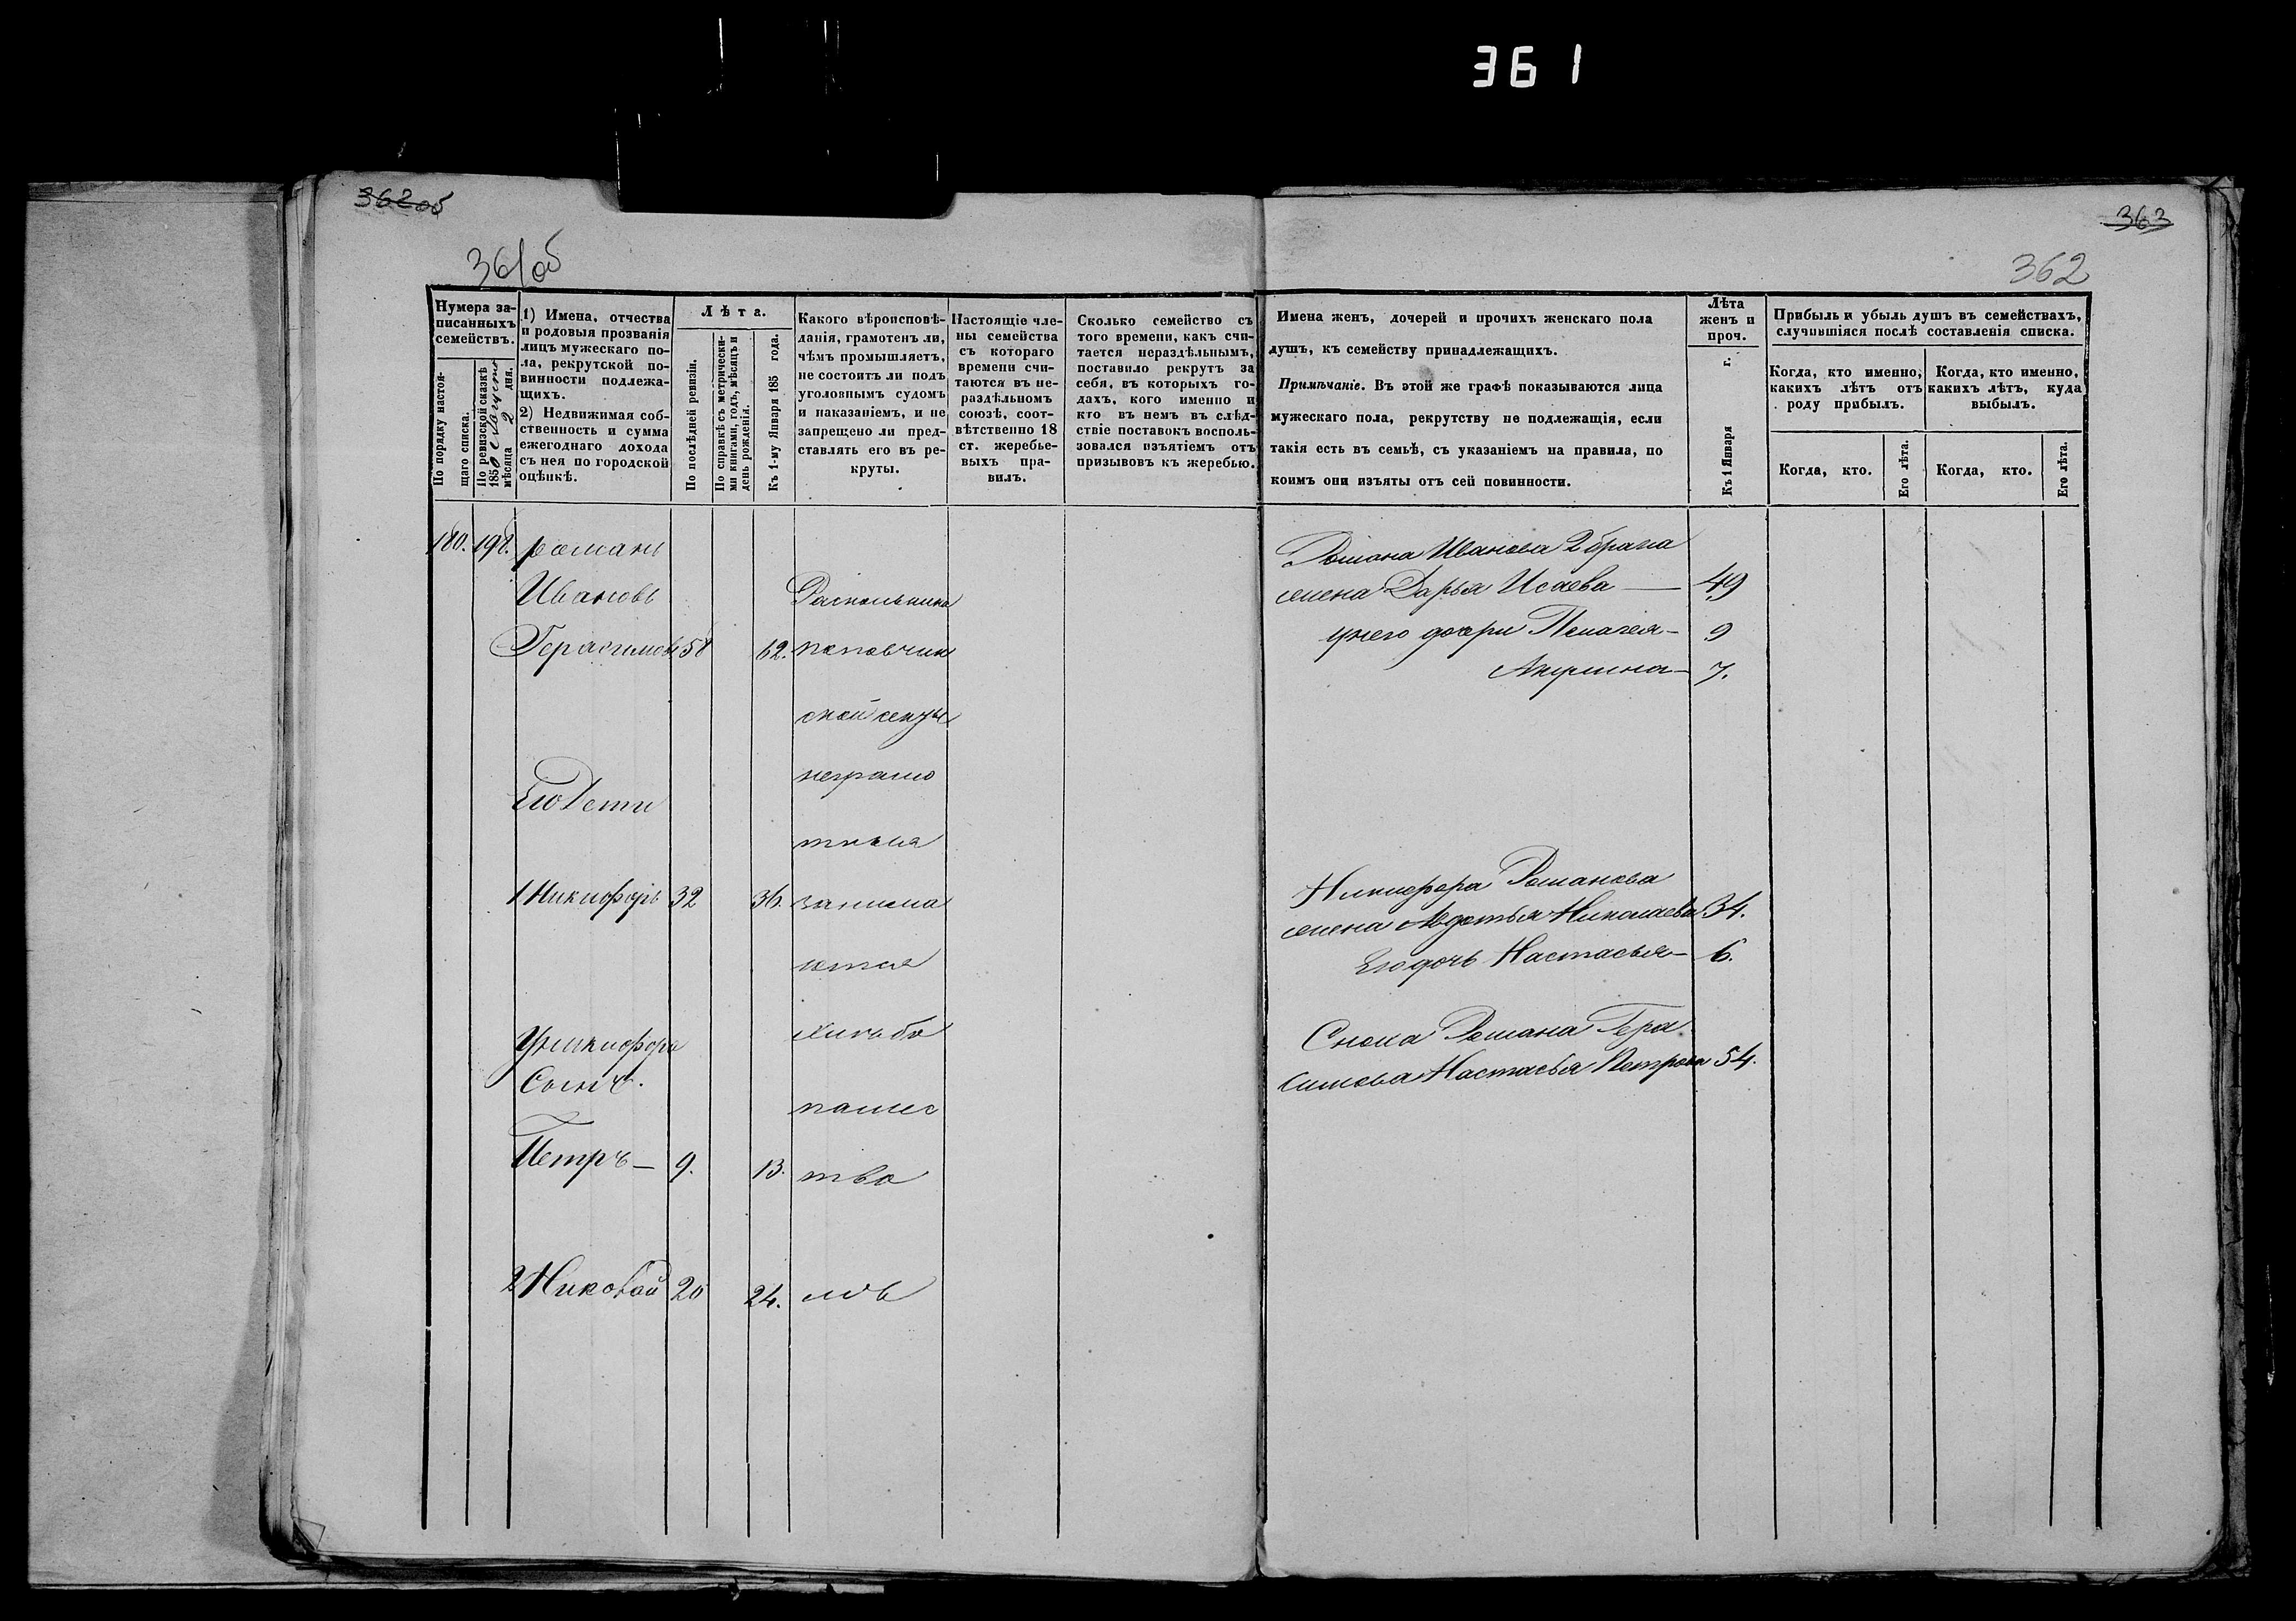 361
362об
361об
363
362
Нумера за-
писанныхъ
семействъ.
По порядку настоя-
щаго списка.
По ревизской сказкѣ
1850
мѣсяца 2 дня.
1) Имена, отчества
и родовыя прозванія
лицъ мужескаго по-
ла, рекрутской по-
винности подлежа-
щихъ.
2) Недвижимая соб-
ственность и сумма
ежегоднаго дохода
съ нея по городской
оцѣнкѣ.
Лѣта.
По послѣдней ревизіи.
По справкѣ съ метрически-
ми книгами, годъ, мѣсяцъ и
день рожденія.
Къ 1-му Января 185 года.
Какого вѣроисповѣ-
данія, грамотенъ ли,
чѣмъ промышляетъ,
не состоитъ ли подъ
уголовнымъ судомъ
и наказаніемъ, и не
запрещено ли пред-
ставлять его въ ре-
круты.
Настоящіе чле-
ны семейства
съ котораго
времени счи-
таются въ не-
раздѣльномъ
союзѣ, соот-
вѣтственно 18
ст. жеребье-
выхъ пра-
вилъ.
Сколько семейство съ
того времени, какъ счи-
тается нераздѣльнымъ,
поставило рекрутъ за
себя, въ которыхъ го-
дахъ, кого именно и
кто въ немъ въ слѣд-
ствіе поставокъ восполь-
зовался изъятіемъ отъ
призывовъ къ жеребью.
Имена женъ, дочерей и прочихъ женскаго пола
душъ, къ семейству принадлежащихъ.
Примѣчаніе. Въ этой же графѣ показываются лица
мужескаго пола, рекрутству не подлежащія, если
такія есть въ семьѣ, съ указаніемъ на правила, по
коимъ они изъяты отъ сей повинности.
Лѣта
женъ и
проч.
Къ 1 Января г.
Прибыль и убыль душъ въ семействахъ,
случившіяся послѣ составленія списка.
Когда, кто именно,
какихъ лѣтъ отъ
роду прибылъ.
Когда, кто именно,
какихъ лѣтъ, куда
выбылъ.
Когда, кто.
Его лѣта.
Когда, кто.
Его лѣта.
180. 198. Романъ
Ивановъ
Герасимовъ 58 62.
Его Дети
1 Никифоръ 32 36.
У Никифора
Сынъ.
Петръ — 9. 13.
2 Николай 20 24.
Раскольники
поповчин
ской секты
неграмо
тныя
занима
ются
хлѣбо
пашес
тво
мъ
Романа Иванова 2 брака
жена Дарья Исаева — 49
у него дочери Пелагея — 9
Акулина — 7.
Никифора Романова
жена Авдотья Николаева 34.
Его дочь Настасья — 6.
Сноха Романа Гера
симова Настасья Петрова 54.